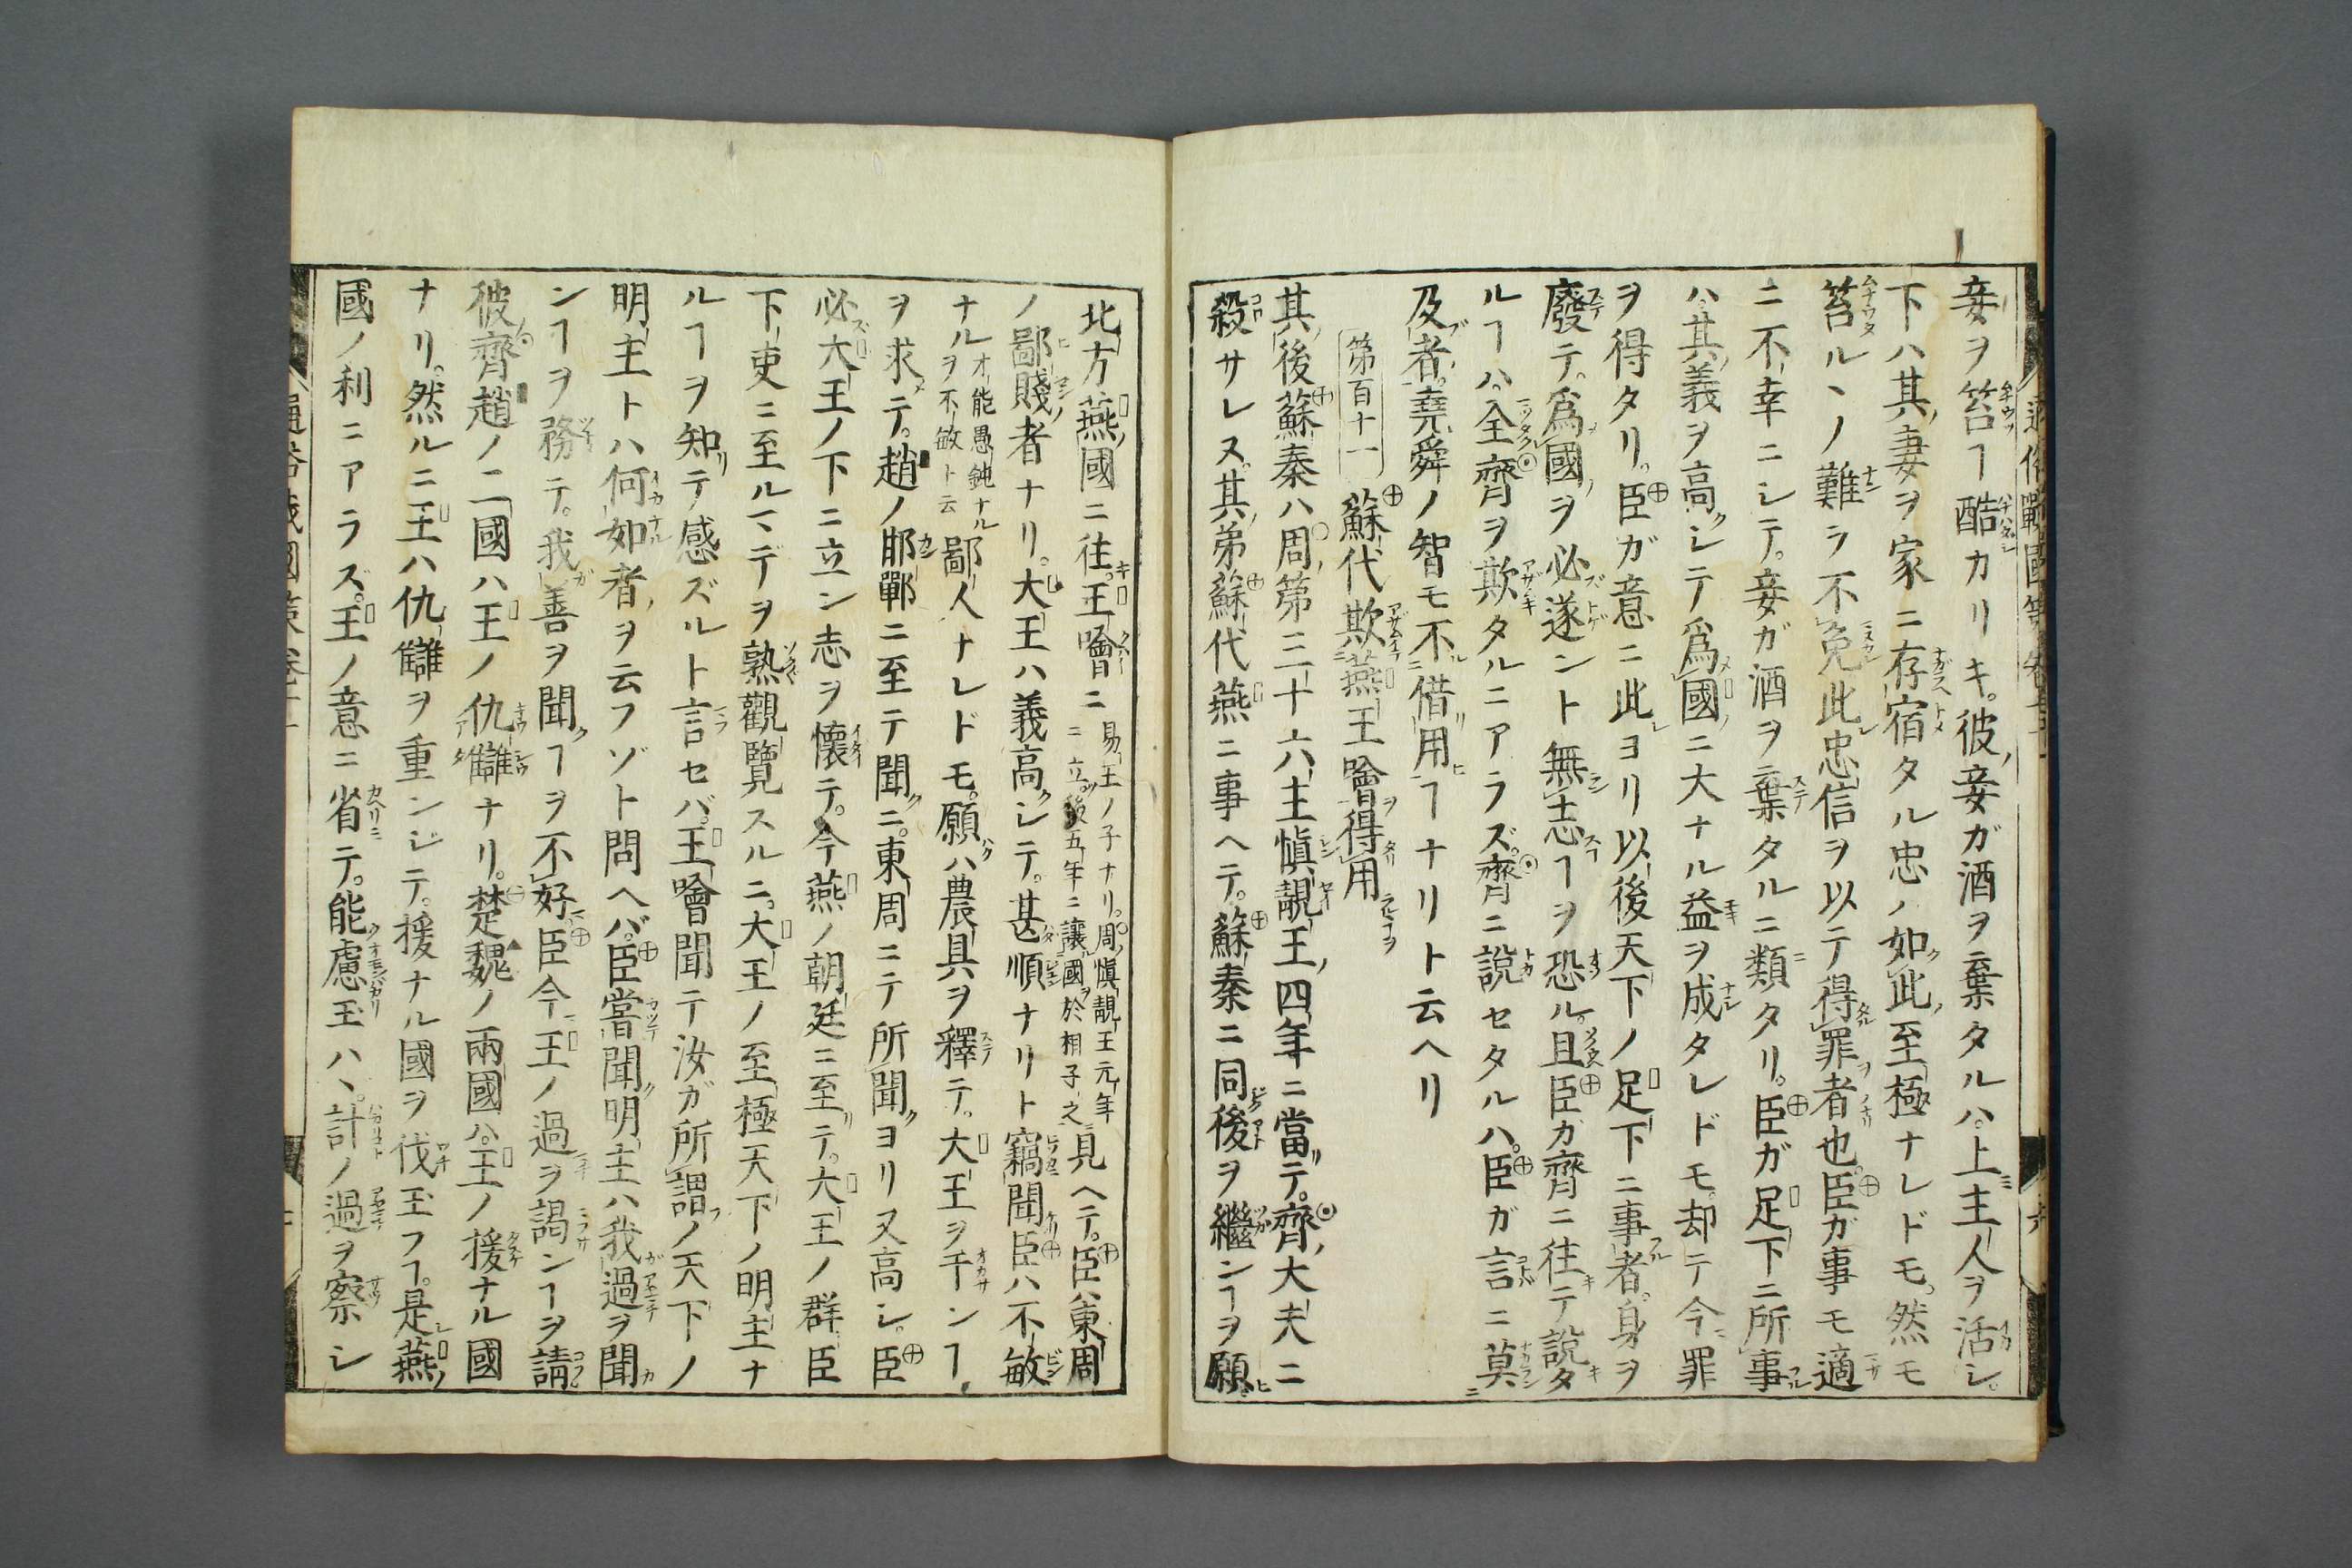 妾ヲ笞ヿ酷カリキ。彼妾ガ酒ヲ棄タルハ。上主人ヲ活シ。
下ハ其妻ヲ家ニ存宿タル忠ノ如此至極ナレドモ。然モ
笞ルヽノ難ラ不免此忠信ヲ以テ得罪者也。臣ガ事モ適
ニ不幸ニシテ。妾ガ酒ヲ棄タルニ類タリ。臣ガ足下ニ所事
ハ其義ヲ高シテ爲國ニ大ナル益ヲ成タレドモ。却テ今罪
ヲ得タリ。臣ガ意ニ此ヨリ以後天下ノ足下ニ事者。身ヲ
廢テ。爲國ヲ必遂ント無志ヿヲ恐ル。且臣ガ齊ニ往テ說タ
ルヿハ。全齊ヲ欺タルニアラズ。齊ニ說セタルハ。臣ガ言ニ莫
及者。堯舜ノ智モ不借用ヿナリト云ヘリ
第百十一 蘇代欺燕王噲得用
其後蘇秦ハ周第三十六主愼靚王四年ニ當テ。齊ノ大夫ニ
殺サレヌ。其弟蘇代燕ニ事ヘテ。蘇秦ニ同後ヲ繼ンヿヲ願
北方燕國ニ往。王噲ニ 易王ノ子ナリ。周愼靚王元年ニ立。後五年ニ讓國於相子之 見ヘテ。臣ハ東周
ノ鄙賤者ナリ。大王ハ義高シテ。甚順ナリト竊聞臣ハ不敏
ナル 才能愚鈍ナルヲ不敏ト云 鄙人ナレドモ。願ハ農具ヲ釋テ。大王ヲ干ンヿ
ヲ求テ。趙ノ邯鄲ニ至テ聞ニ。東周ニテ所聞ヨリ又高シ。臣
必大王ノ下ニ立ン志ヲ懷テ。今燕ノ朝廷ニ至テ。大王ノ群臣
下吏ニ至ルマデヲ熟觀覽スルニ。大王ノ至極天下ノ明主ナ
ルヿヲ知テ感ズルト言セバ。王噲聞テ汝ガ所謂ノ天下ノ
明主トハ何如者ヲ云フゾト問ヘバ。臣當聞明主ハ我過ヲ聞
ンヿヲ務テ。我善ヲ聞ヿヲ不好臣今王ノ過ヲ謁ンヿヲ請
彼齊趙ノ二國ハ王ノ仇讎ナリ。楚魏ノ兩國ハ。王ノ援ナル國
ナリ。然ルニ王ハ仇讎ヲ重ンジテ。援ナル國ヲ伐玉フヿ。是燕ノ
國ノ利ニアラズ。王ノ意ニ省テ。能慮玉ハヽ。計ノ過ヲ察シ